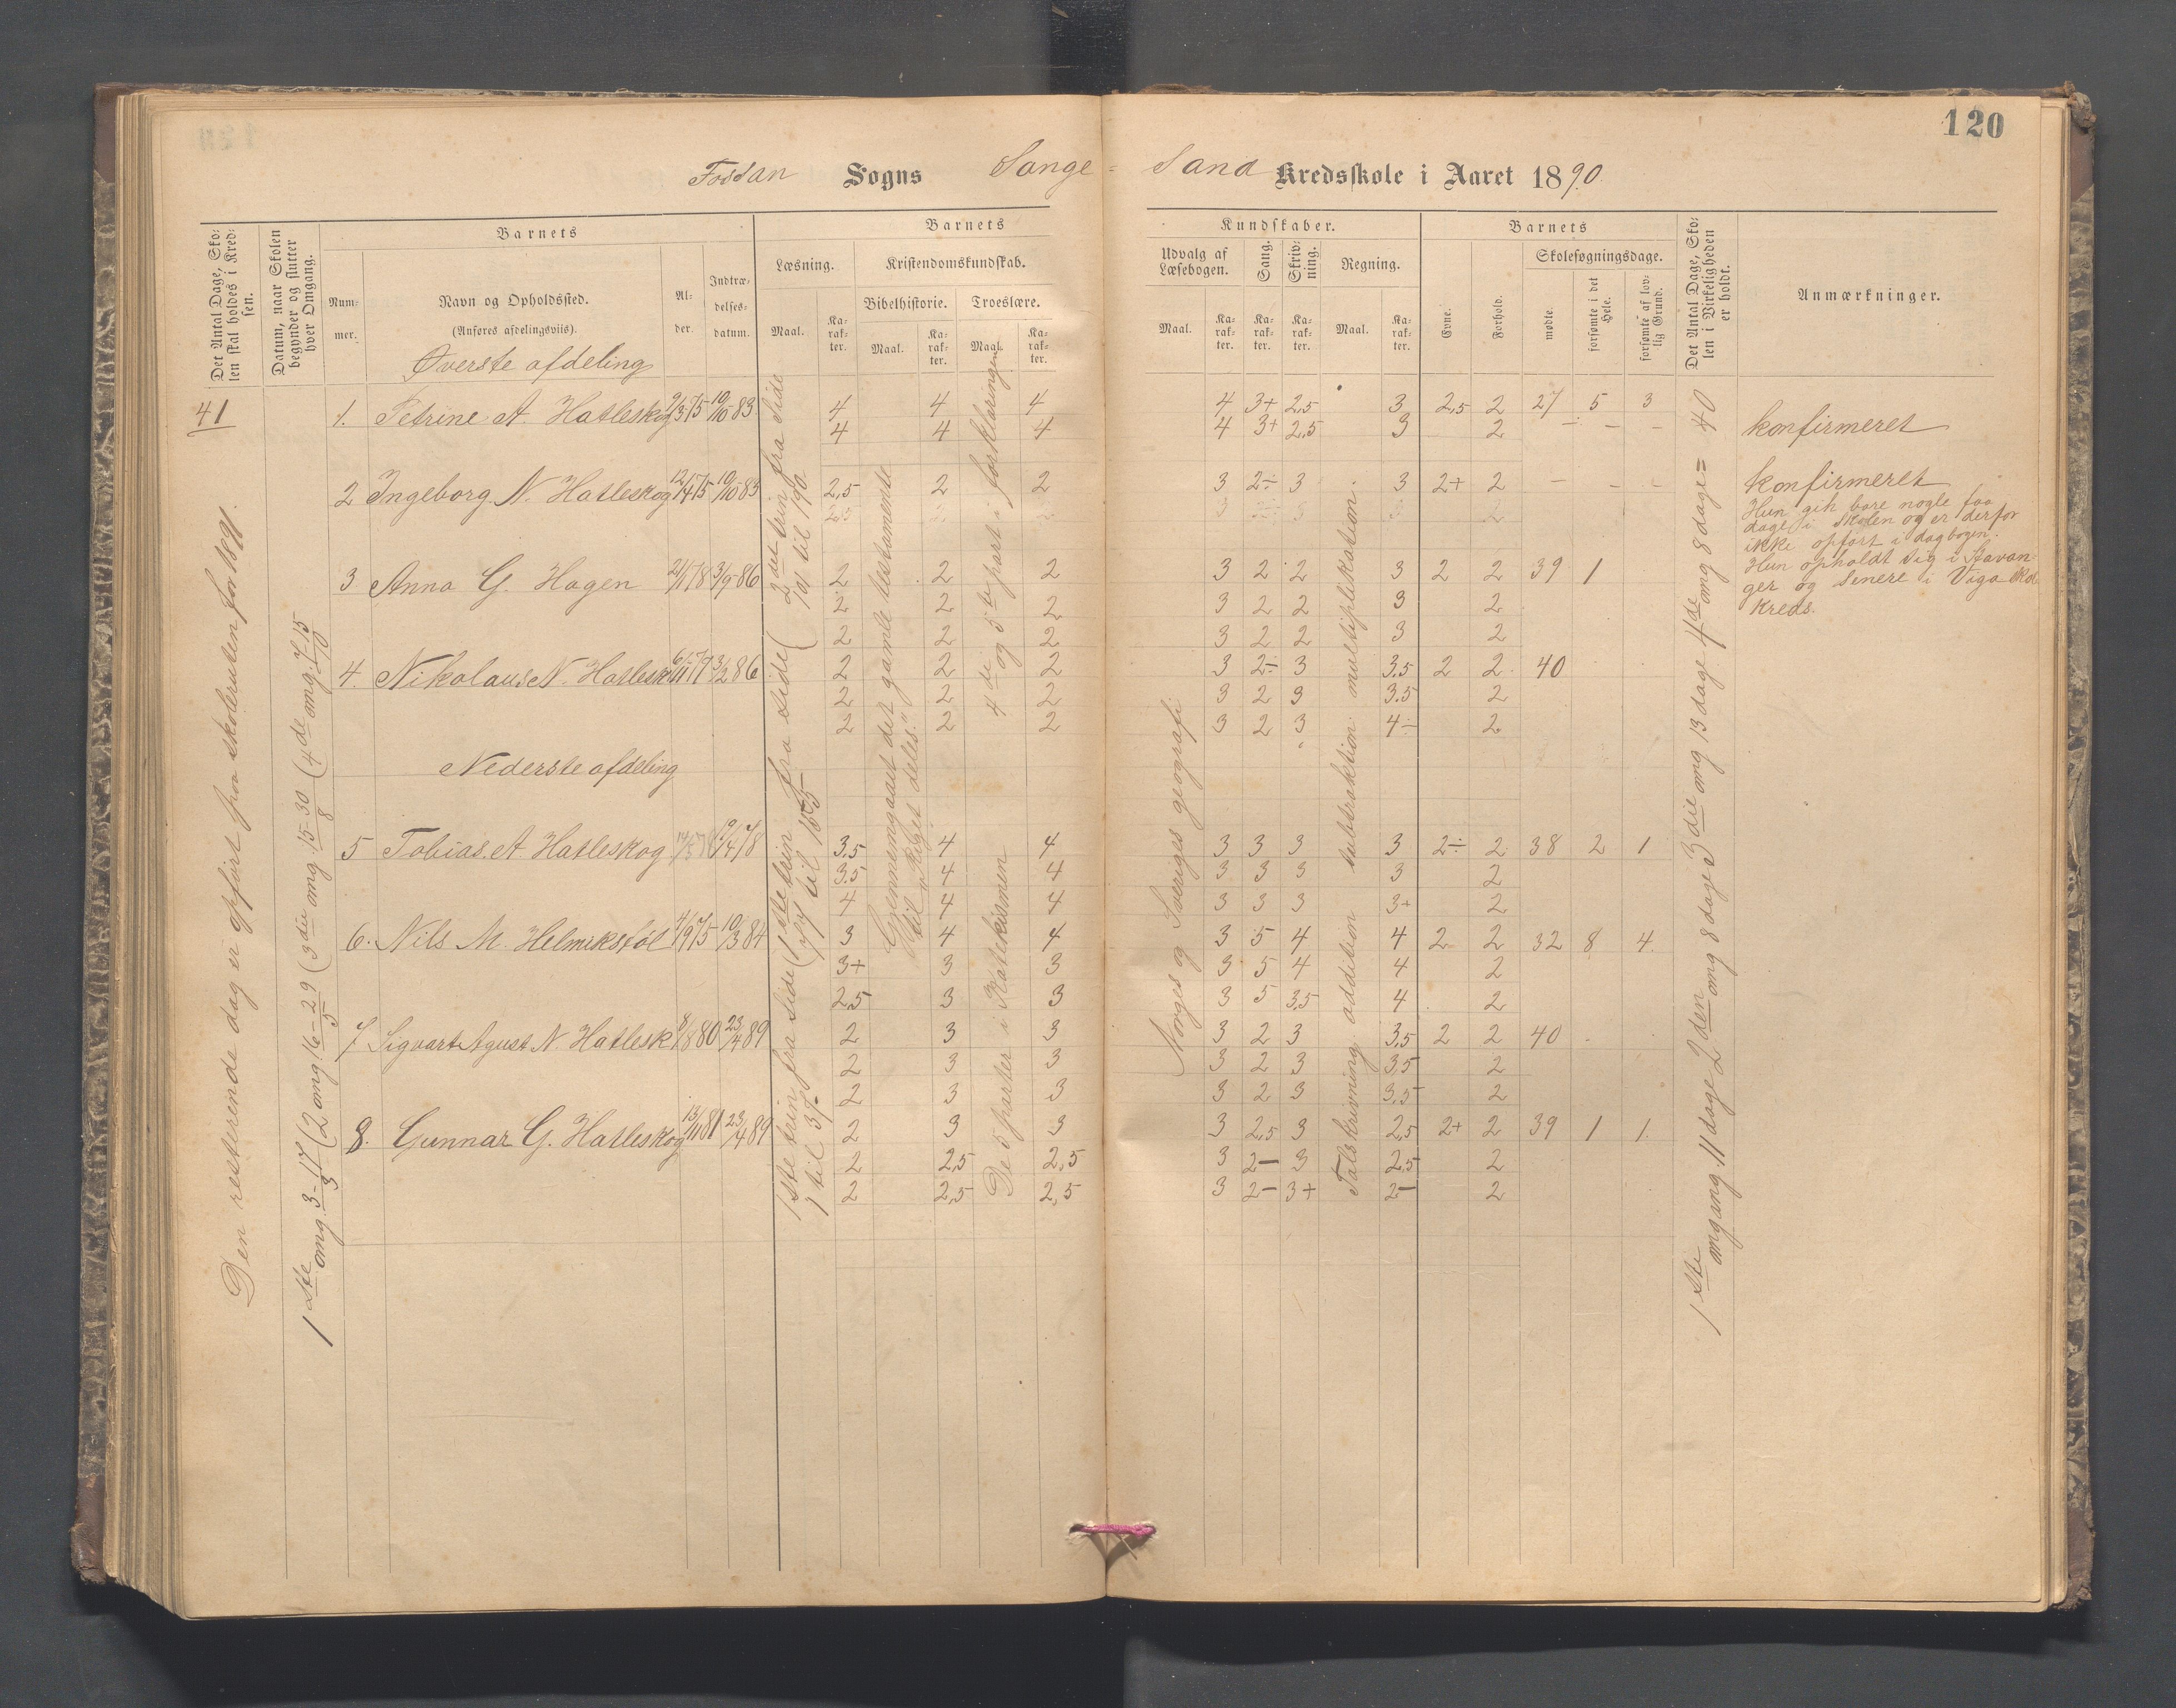 120
Fossan Sogns Songe = Sand Kredsskole i Aaret 1890.
Det Antal Dage, Sko-
len skal holdes i Kred-
sen.
Datum, naar Skolen
begynder og slutter
hver Omgang.
Barnets
Num-
mer.
Navn og Opholdssted.
(Anføres afdelingsviis).
Al-
der.
Indtræ-
delses-
datum.
Barnets
Læsning.
Maal.
Ka-
rak-
ter.
Kristendomskundskab.
Bibelhistorie.
Maal.
Ka-
rak-
ter.
Troeslære.
Maal.
Ka-
rak-
ter.
Kundskaber.
Udvalg af
Læsebogen.
Maal.
Ka-
rak-
ter.
Sang.
Ka-
rak-
ter.
Skriv-
ning.
Ka-
rak-
ter.
Regning.
Maal.
Ka-
rak-
ter.
Barnets
Evne.
Forhold.
Skolesøgningsdage.
mødte.
forsømte i det
Hele.
forsømte af lov-
lig Grund.
Det Antal Dage, Sko-
len i Virkeligheden
er holdt.
Anmærkninger.
Øverste afdeling
41
1. Petrine A. Hatleskog 9/3 75 10/10 83 4 4 4 4 3+ 2,5 3 2,5 2 27 5 3
4 4 4 4 3+ 2,5 3 2 – – –
konfirmeret
2 Ingeborg N. Hatleskog 12/4 75 10/10 83 2,5 2 2 3 2÷ 3 3 2+ 2 – – –
konfirmeret
Hun gik bare nogle faa
dage i skolen og er derfor
ikke opført i dagbogen.
Hun opholdt sig i Stavan-
ger og senere i Viga skole
kreds.
3 Anna G. Hagen 21/1 78 3/9 86 2 2 2 3 2 2 3 2 2 39 1
2 2 2 3 2 2 3 2
2 2 2 3 2 2 3 2
4. Nikolaus N. Hatlesk 6/11 77 3/2 86 2 2 2 3 2÷ 3 3,5 2 2 40
2 2 2 3 2 3 3.5 2
2 2 2 3 2 3 4÷ 2
Nederste afdeling
5 Tobias A. Hatleskog 3,5 4 4 3 3 3 3 2÷ 2 38 2 1
3.5 4 4 3 3 3 3 2
4 4 4 3 3 3 3+ 2
6. Nils M. Helmikstøl 4/9 75 10/3 84 3 4 4 3 5 4 4 2 2 32 8 4
3+ 3 3 3 5 4 4 2
2,5 3 3 3 5 3,5 4 2
7 Sigvart Agust N. Hatlesk 8/8 80 23/4 89 2 3 3 3 2 3 3,5 2 2 40
2 3 3 3 2 3 3,5 2
2 3 3 3 2 3 3,5 2
8. Gunnar G. Hatleskog 13/11 81 23/4 89 2 3 3 3 2,5 3 2,5 2+ 2 39 1 1
2 2,5 2,5 3 2– 3 2,5 2
2 2,5 2,5 3 2– 3+ 2– 2
Den resterende dag er opført paa skoleruten for 1891.
1ste omg. 3–17/3 (2 omg 16–29/5 (3die omg. 15–30/8 (4de omg.
1ste trin fra side
1 til 37
1ste trin fra side
77 til 165
2det trin fra side
71 til 190
Gjennemgaaet det gamle testamente
til "Riget deles."
De 5 parter i Katekismen
4de og 5te part i forklaringen
Norges og Sveriges geografi
Talskrivning. addition substraktion multiplikation.
1ste omgang. 11 dage 2den omg 8 dage 3die omg 13 dage 4de omg 8 dage = 40